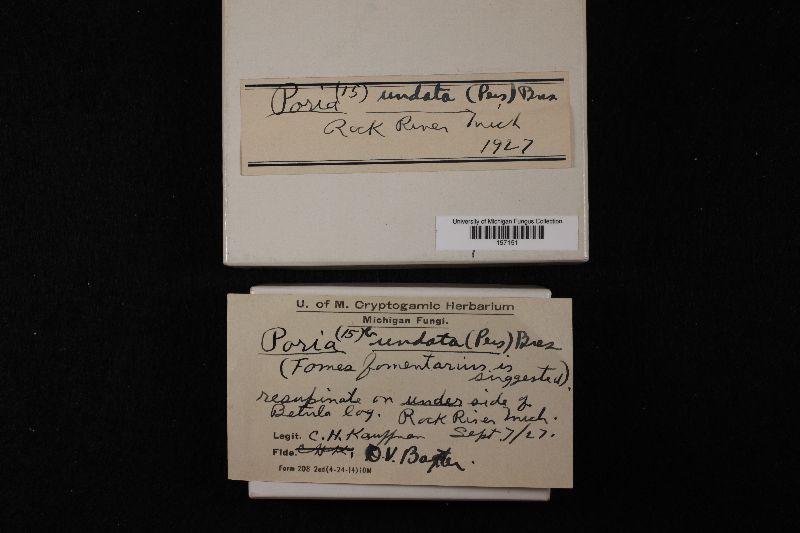 Poria (15) undata (Pers) Bres
Rock River Mich
1927
University of Michigan Fungus Collection
157151
U. of M. Cryptogamic Herbarium
Michigan Fungi.
Poria (15) undata (Pers) Bres
(Fomes fomentarius is
suggested).
resupinate on under side of
Betula log. Rock River Mich.
Legit. C. H. Kauffman Sept. 7/27.
Fide. C H K, D.V. Baxter.
Form 208 2ed(4-24-14)10M